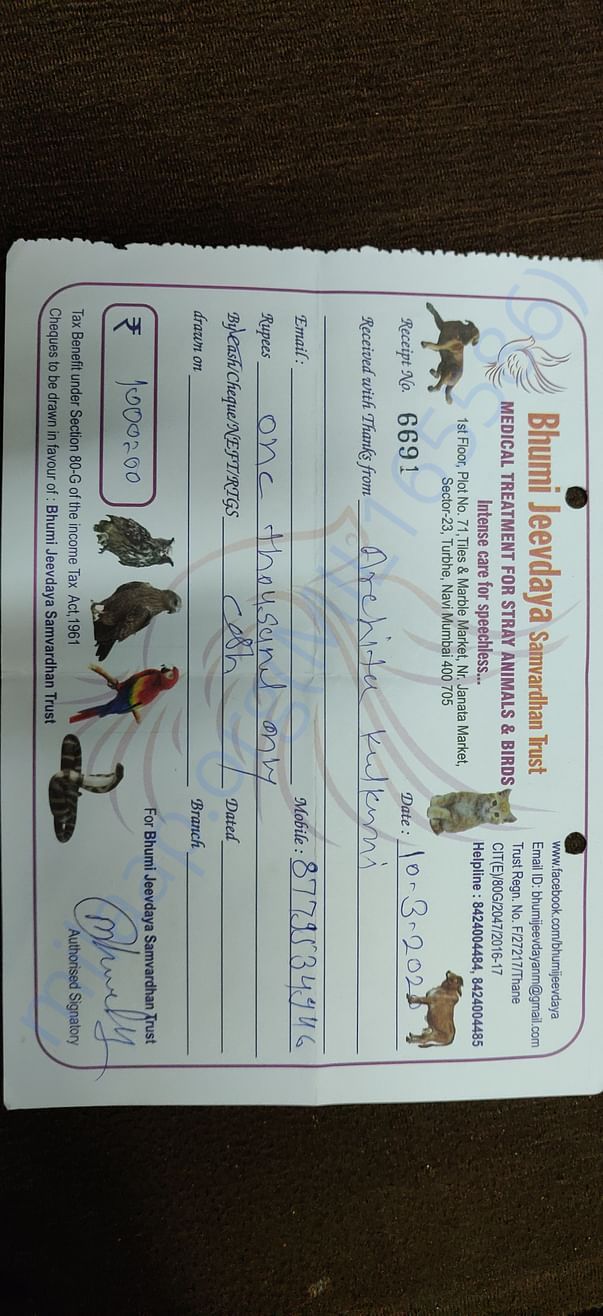 Bhumi Jeevdaya Samvardhan Trust
MEDICAL TREATMENT FOR STRAY ANIMALS & BIRDS
Intense care for speechless...
1st Floor, Plot No. 71, Tiles & Marble Market, Nr. Janata Market,
Sector-23, Turbhe, Navi Mumbai 400 705
www.facebook.com/bhumijeevdaya
Email ID: bhumijeevdayanm@gmail.com
Trust Regn. No. F/27217/Thane
CIT(E)/80G/2047/2016-17
Helpline : 8424004484, 8424004485
Receipt No. 6691 Date : 10-3-202
Received with Thanks from Archita Kulkarni
Email : Mobile :
Rupees one thousand only
By Cash/Cheque/NEFT/RTGS cash Dated
drawn on Branch
₹ 1000=00
For Bhumi Jeevdaya Samvardhan Trust
Authorised Signatory
Tax Benefit under Section 80-G of the income Tax Act,1961
Cheques to be drawn in favour of : Bhumi Jeevdaya Samvardhan Trust